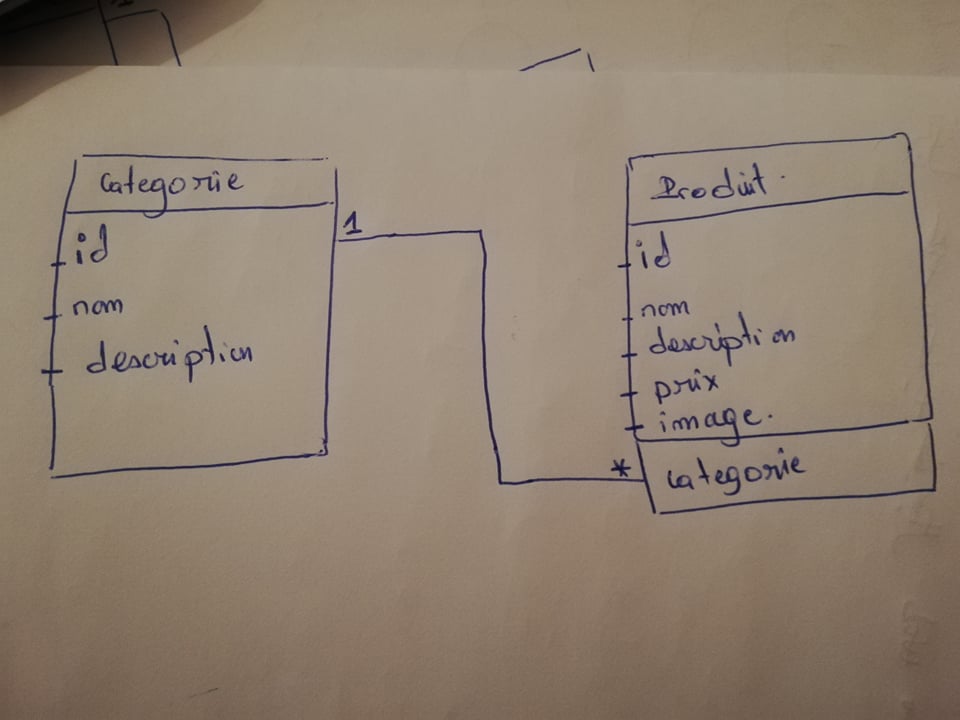 Categorie
id
nom
description
1
Produit.
id
nom
description
prix
image.
*
Categorie